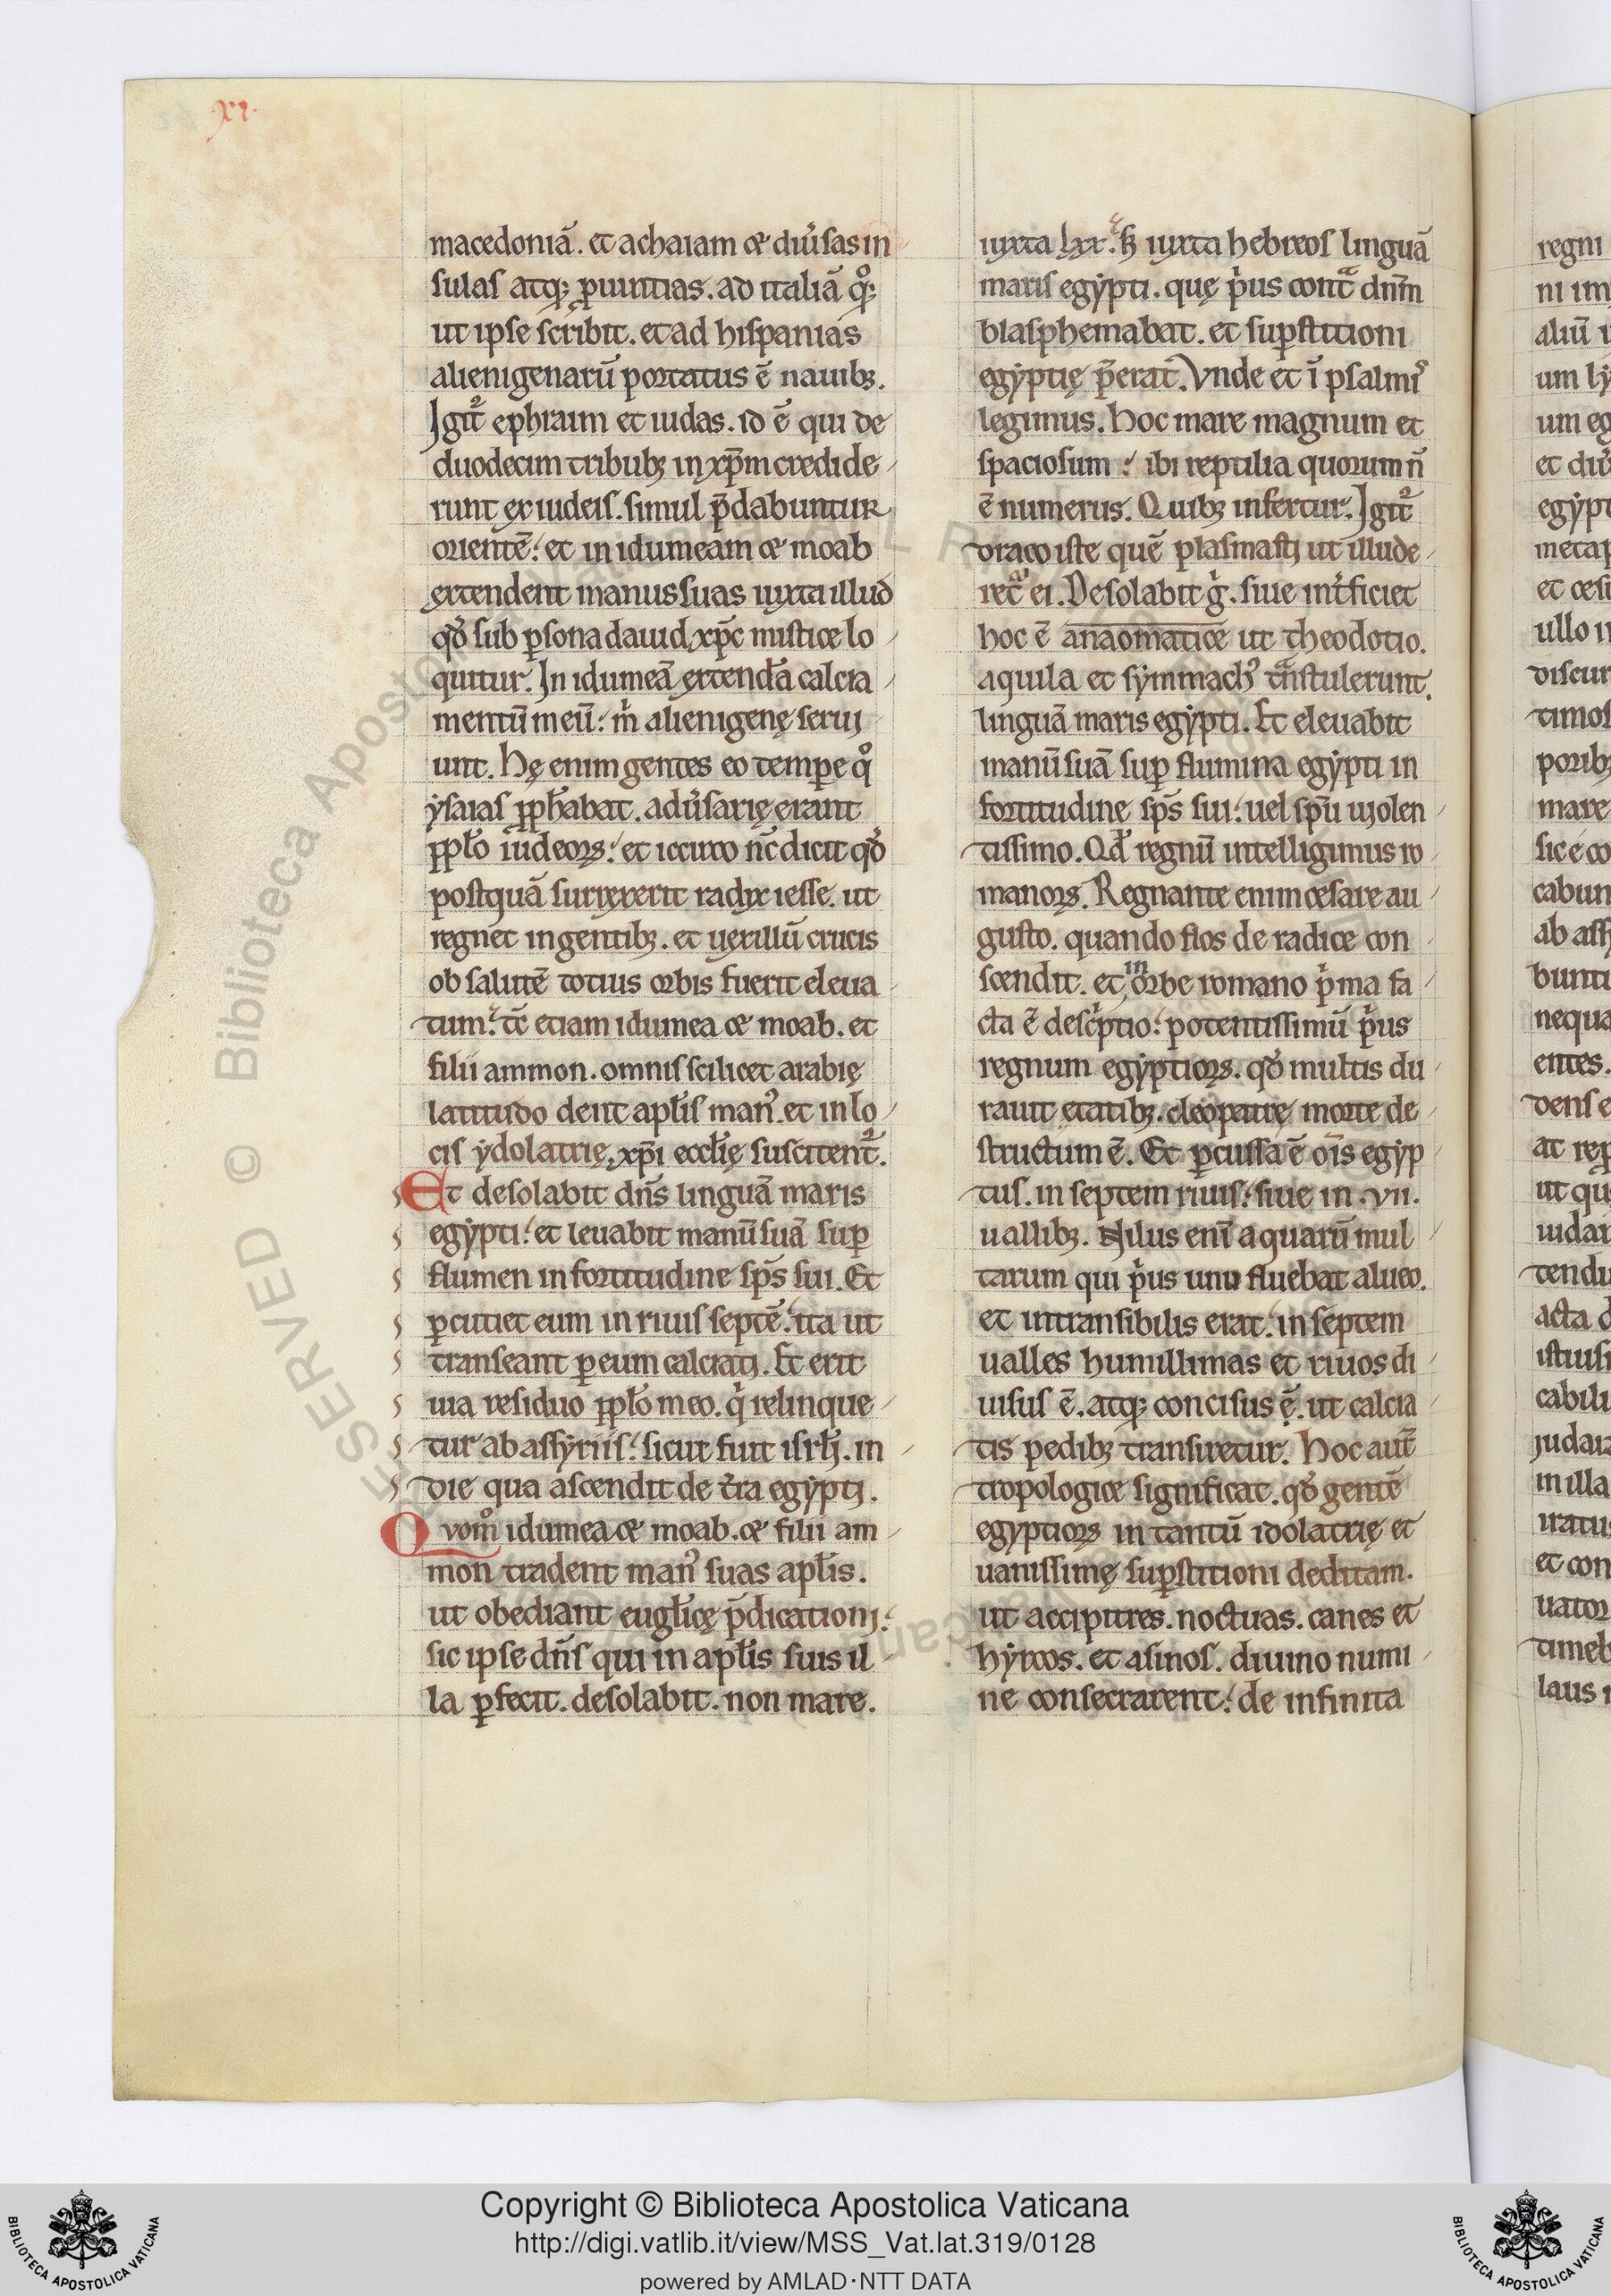 ·XI·
macedoniā. et achaiam ce diu̾sas in
sulas atq; ꝓuintias. ad italiā qͦ;
ut ipse scribit. et ad hispanias
alienigenarū portatus ē nauibꝫ.
Igit᷑ ephraim et iudas. id ē qui de
duodecim tribubꝫ in xp̄m credide
runt ex iudeis. simul p̄dabuntur
orientē: et in idumeam ce moab
extendent manus suas iuxta illud
qd̾ sub ꝑsona dauid xp̄c mistice lo
quitur. In idumeā extendā calcia
mentū meū: m̍ alienigenę serui
unt. Hę enim gentes eo tempꝛe qͦ
ẏsaias ꝓph̄abat. adu̾sarię erant
ppl̄o iudeoꝝ: et iccirco nc̄ dicit qd̾
postquā surrexerit radix iesse. ut
regnet in gentibꝫ. et uexillū crucis
ob salutē totius orbis fuerit eleua
tum: tc̄ etiam idumea ce moab. et
filii ammon. omnis scilicet arabię
latitudo dent apl̄is man᷒. et in lo
cis ẏdolatrię, xp̄i eccl̄ię suscitent᷑.
Et desolabit dn̄s linguā maris
egẏpti: et leuabit manū suā suꝑ
flumen in fortitudine sp̄s sui. Et
ꝑcutiet eum in riuis septē: ita ut
transeant ꝑ eum calciati. Et erit
uia residuo ppl̄o meo. q̍ relinque
tur ab assẏriis: sicut fuit isrl̄. in
die qua ascendit de t̾ra egẏpti.
Quomͦ idumea ce moab. ce filii am
mon tradent man᷒ suas apl̄is.
ut obediant eugl̄icę p̄dicationi:
sic ipse dn̄s qui in apl̄is suis il
la ꝑfecit. desolabit. non mare.
iuxta lxx: s; iuxta hebreos linguā
maris egẏpti. quę p̍us cont̾ dn̄m
blasphemabat. et suꝑstitioni
egẏptię p̄erat. Vnde et ī psalmis
legimus. Hoc mare magnum et
spaciosum: ibi reptilia quorum n̄
ē numerus. Quibꝫ infertur. Igit᷑
draco iste quē plasmasti ut illude
ret᷑ ei. Desolabit g̍. siue int̾ficiet
hoc ē anaomatice ut theodotio.
aquila et sẏmmach᷒ t̾nstulerunt.
linguā maris egẏpti. Et eleuabit
manū suā suꝑ flumina egẏpti in
fortitudine sp̄s sui: uel sp̄u uiolen
tissimo. Qd̄ regnū intelligimus ro
manoꝝ. Regnante enim cesare au
gusto. quando flos de radice con
scendit. et in orbe romano p̍ma fa
cta ē desc̍ptio: potentissimū p̍us
regnum egẏptioꝝ. qd̾ multis du
rauit etatibꝫ. cleopatrę morte de
structum ē. Et ꝑcussa ē oīs egẏp
tus. in septem riuis: siue in .VII.
uallibꝫ. Nilus enī aquarū mul
tarum qui p̍us uno fluebat alueo.
et intransibilis erat: in septem
ualles humillimas et riuos di
uisus ē. atq; concisus ē. ut calcia
tis pedibꝫ transiretur. Hoc aut̄
tropologice significat. qd̾ gentē
egẏptioꝝ in tantū idolatrię et
uanissimę suꝑstitioni deditam.
ut accipitres. noctuas. canes et
hẏrcos. et asinos. diuino numi
ne consecrarent: de infinita
regni
aliū
um lẏ
um eg
et diu̾
egẏpt
metap
ullo in
discur
poribꝫ
mare
cabun
ab ass
bunt
nequa
entes.
dens e
ut qu
iudaı
tendu
acta d
cabili
et con
uator
timeb
laus
Copyright © Biblioteca Apostolica Vaticana
http://digi.vatlib.it/view/MSS_Vat.lat.319/0128
powered by AMLAD·NTT DATA
BIBLIOTECA APOSTOLICA VATICANA
BIBLIOTECA APOSTOLICA VATICANA